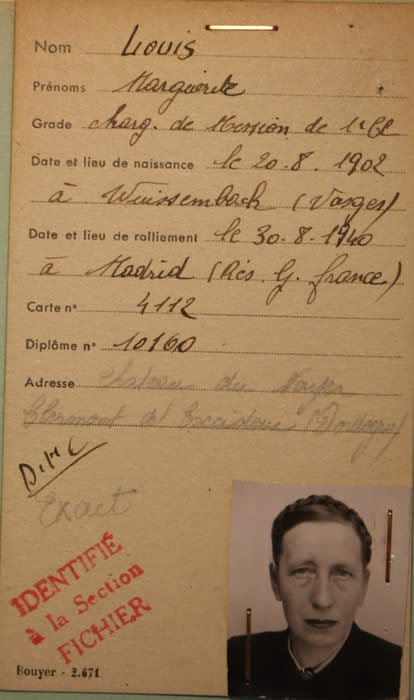 Nom Louis
Prénoms Marguerite
Grade charg. de Mission de 1e Cl
Date et lieu de naissance le 20.8.1902
à Wuissembach (Vosges)
Date et lieu de ralliement le 30-8-1940
à Madrid (Rés. G. france)
Carte n° 4112
Diplôme n° 10160
Adresse Chateau du
Clermont d' (Dordogne)
Exact
IDENTIFIÉ
à la Section
FICHIER
Bouyer - 2.671